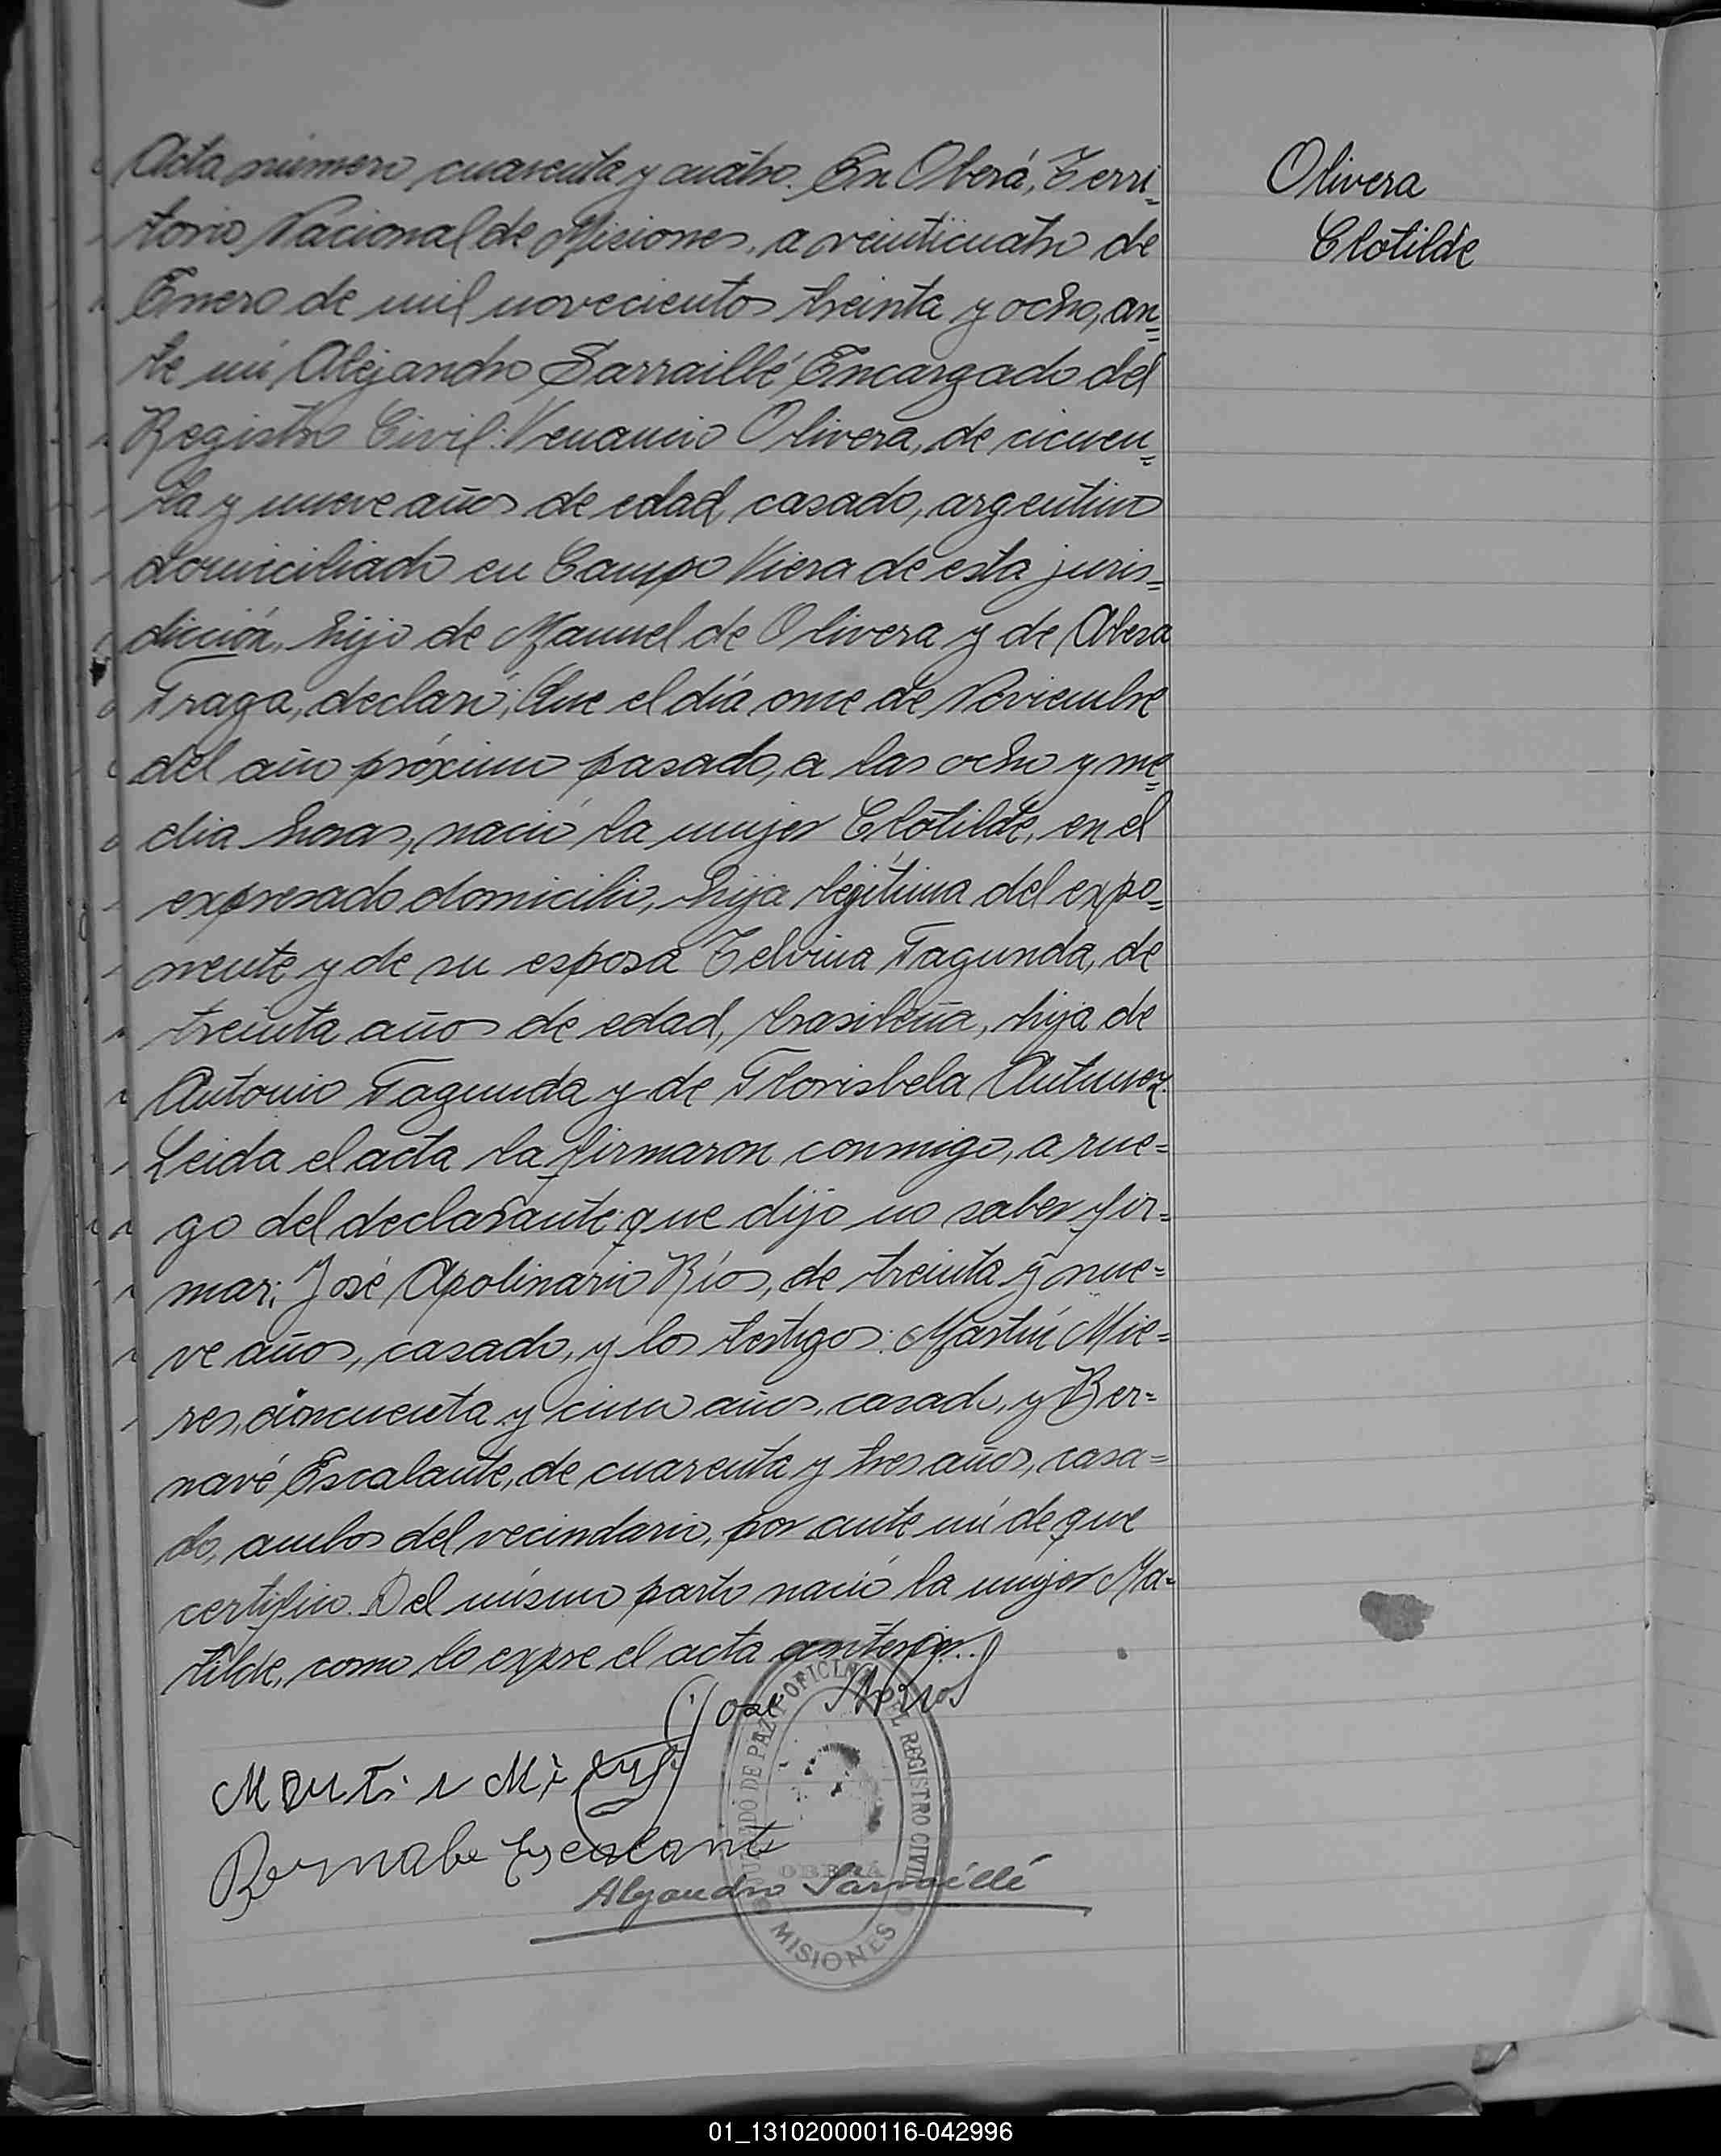 Acta número cuarenta y cuatro. En Oberá, Terri=
torio Nacional de Misiones, a veinticuatro de
Enero de mil novecientos treinta y ocho, an=
te mí Alejandro Sarraillé, Encargado del
Registro Civil: Venancio Olivera, de cicuen=
ta y nueve años de edad, casado, argentino
domiciliado en Campo Viera de esta juris=
dicción, hijo de Manuel de Olivera y de
Fraga, declaró; Que el día once de Noviembre
del año próximo pasado, a las ocho y me=
dia horas, nació la mujer Clotilde, en el
expresado domicilio, hija legítima del expo=
nente y de su esposa Telvina Fagunda, de
treinta años de edad, brasileña, hija de
Antonio Fagunda y de Florisbela Antunez.
Leida el acta la firmaron conmigo, a rue=
go del declarante que dijo no saber fir=
mar; José Apolinario Ríos, de treinta y nue=
ve años, casado, y los testigos: Martín Mie=
res, cincuenta y cinco años, casado, y Ber=
navé Escalante, de cuarenta y tres años, casa=
do, ambos del vecindario, por ante mí de que
certifico. Del mismo parto nació la mujer Ma=
tilde, como lo expre el acta anterior..
José Ap Rios
Martin Mieres
Bernabe Escalante
Alejandro Sarraillé
JUZGADO DE PAZ Y OFICINA DEL REGISTRO CIVIL
OBERÁ
MISIONES
Olivera
Clotilde
01_131020000116-042996